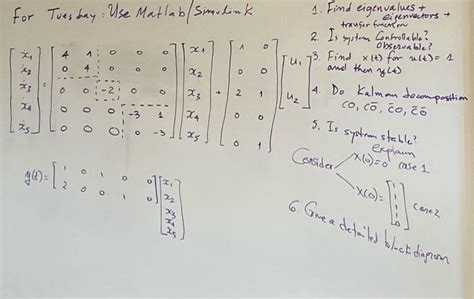 For Tuesday: Use Matlab/Simulink
[ẋ1 ẋ2 ẋ3 ẋ4 ẋ5] = [
4 1 0 0 0
0 4 0 0 0
0 0 -2 0 0
0 0 0 -3 1
0 0 0 0 -3
] [x1 x2 x3 x4 x5] + [
1 0
0 0
2 1
0 0
0 1
] [u1 u2]
y(t) = [
1 0 1 0 0
2 0 0 1 0
] [x1 x2 x3 x4 x5]
1. Find eigenvalues +
eigenvectors +
transfer function
2. Is system Controllable?
Observable?
3. Find x(t) for u(t) = 1
and then y(t)
4. Do Kalman decomposition
CO, CŌ, C̄O, C̄Ō
5. Is system stable?
explain
Consider
x(0)=0 case 1
x(0)= [1 1 1 1 0] case 2
6. Give a detailed block diagram